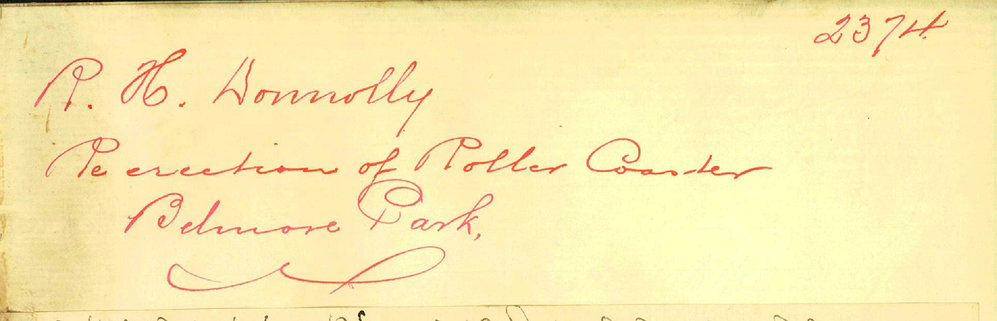 2374
R. H. Donnolly
Re erection of Roller Coaster
Belmore Park.